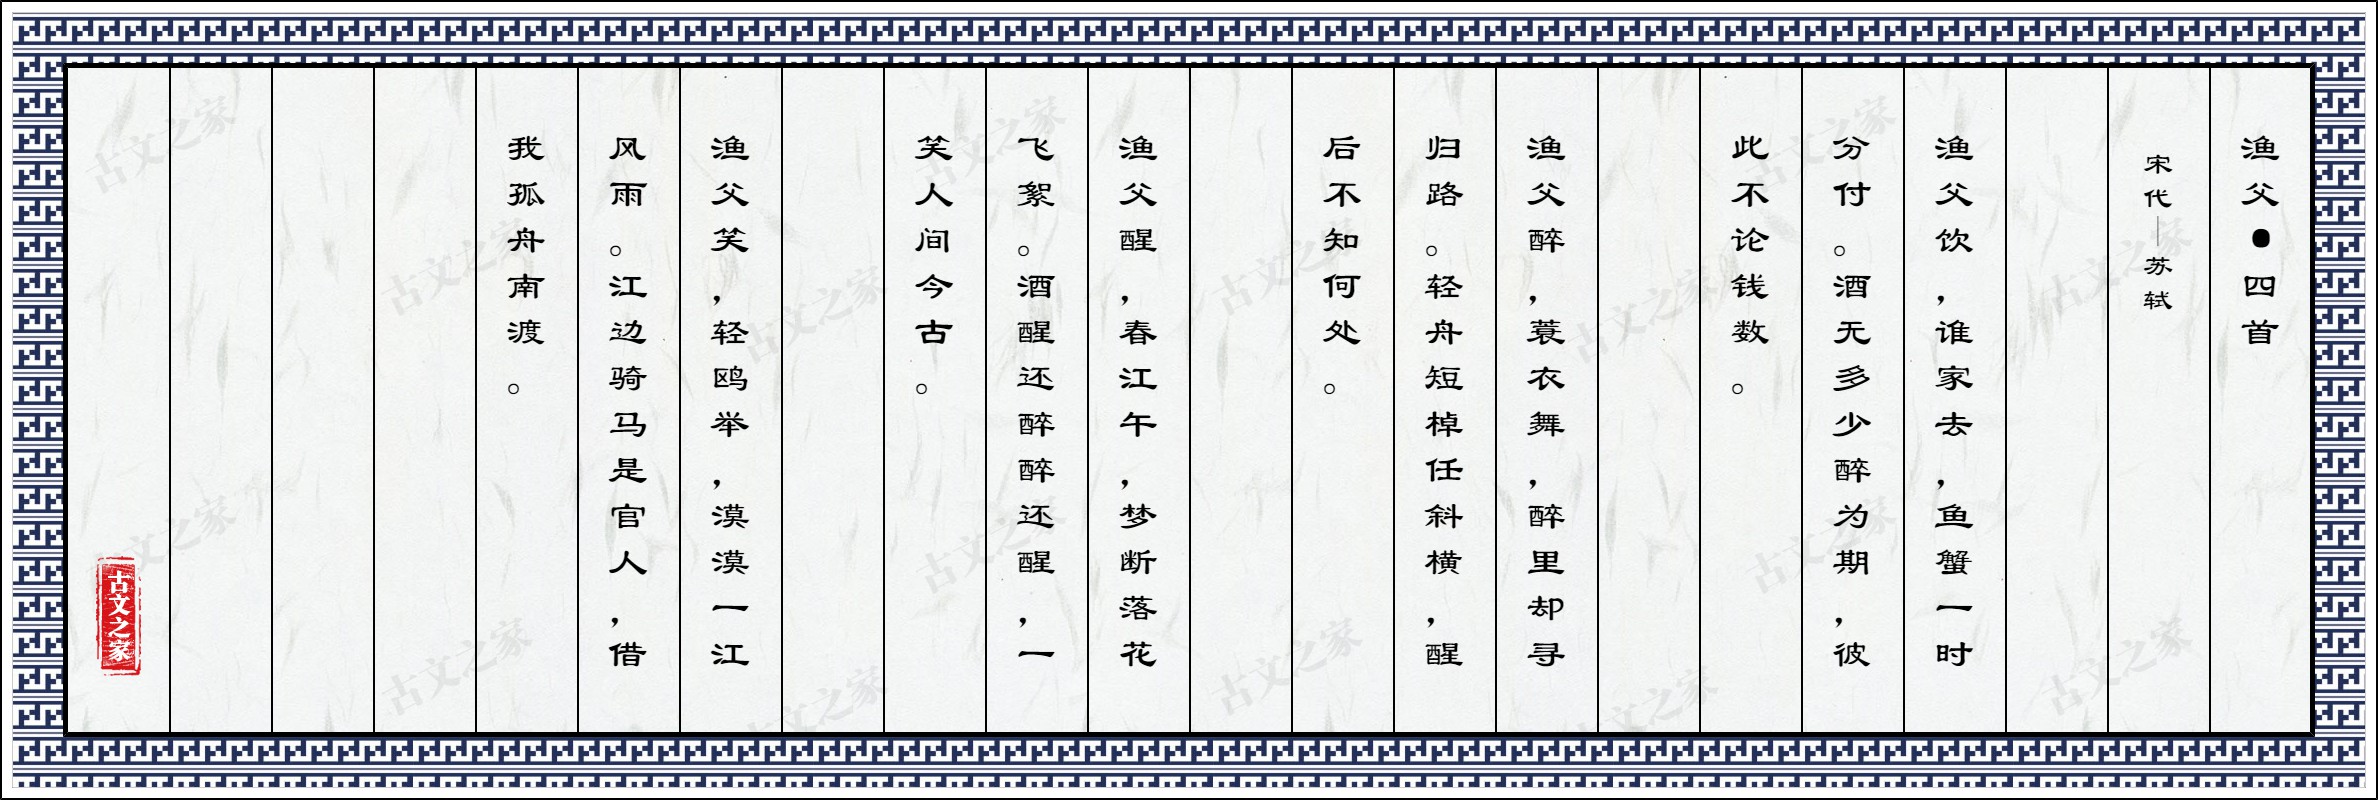 渔父●四首
宋代—苏轼
渔父饮，谁家去，鱼蟹一时
分付。酒无多少醉为期，彼
此不论钱数。
渔父醉，蓑衣舞，醉里却寻
归路。轻舟短棹任斜横，醒
后不知何处。
渔父醒，春江午，梦断落花
飞絮。酒醒还醉醉还醒，一
笑人间今古。
渔父笑，轻鸥举，漠漠一江
风雨。江边骑马是官人，借
我孤舟南渡。
古文之家